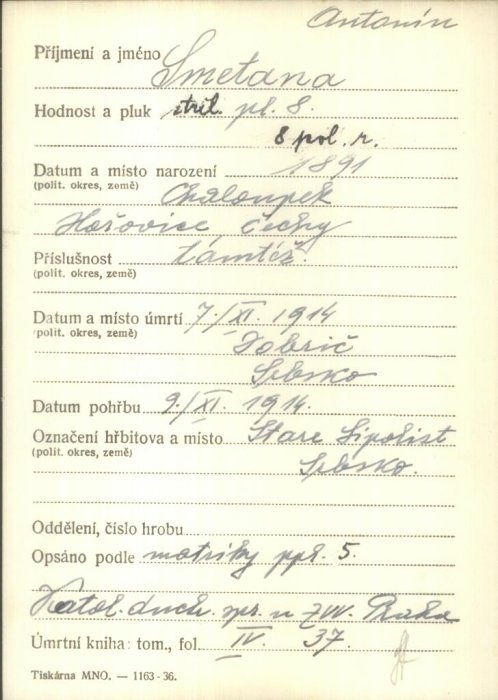 Antonín
Příjmení a jméno Smetana
Hodnost a pluk střel. pl. 8.
8 pol. r.
Datum a místo narození 1891
(polit. okres, země) Chaloupek
Hořovice, Čechy
Příslušnost tamtéž.
(polit. okres, země)
Datum a místo úmrtí 7./XI. 1914
(polit. okres, země) Dobrič
Srbsko
Datum pohřbu 9./XI. 1914.
Označení hřbitova a místo Stare Lipolist
(polit. okres, země) Srbsko.
Oddělení, číslo hrobu
Opsáno podle matriky ppl. 5.
Katol. duch. spr. u ZVV. Praha
Úmrtní kniha: tom., fol. IV. 37.
Tiskárna MNO. — 1163-36.